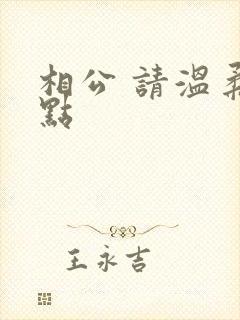 相公 請溫柔
點
王永吉